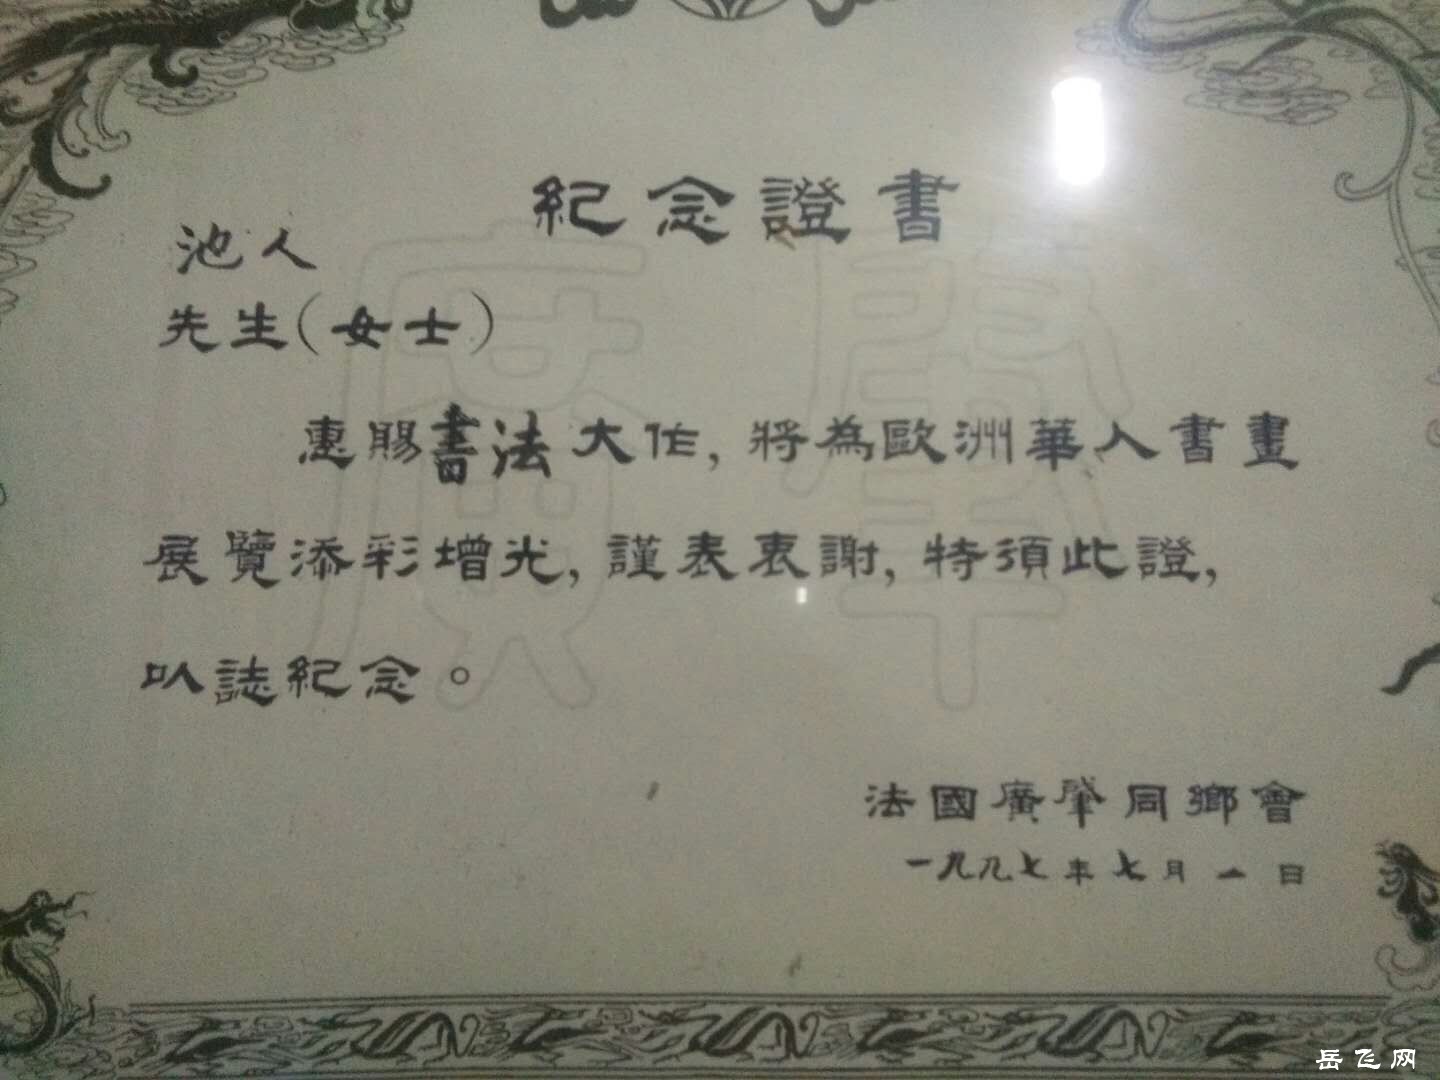 紀念證書
池人
先生(女士)
惠賜書法大作,將為歐洲華人書畫
展覽添彩增光,謹表衷謝,特須此證,
以誌紀念。
法國廣肇同鄉會
一九九七年七月一日
廣肇
岳飞网